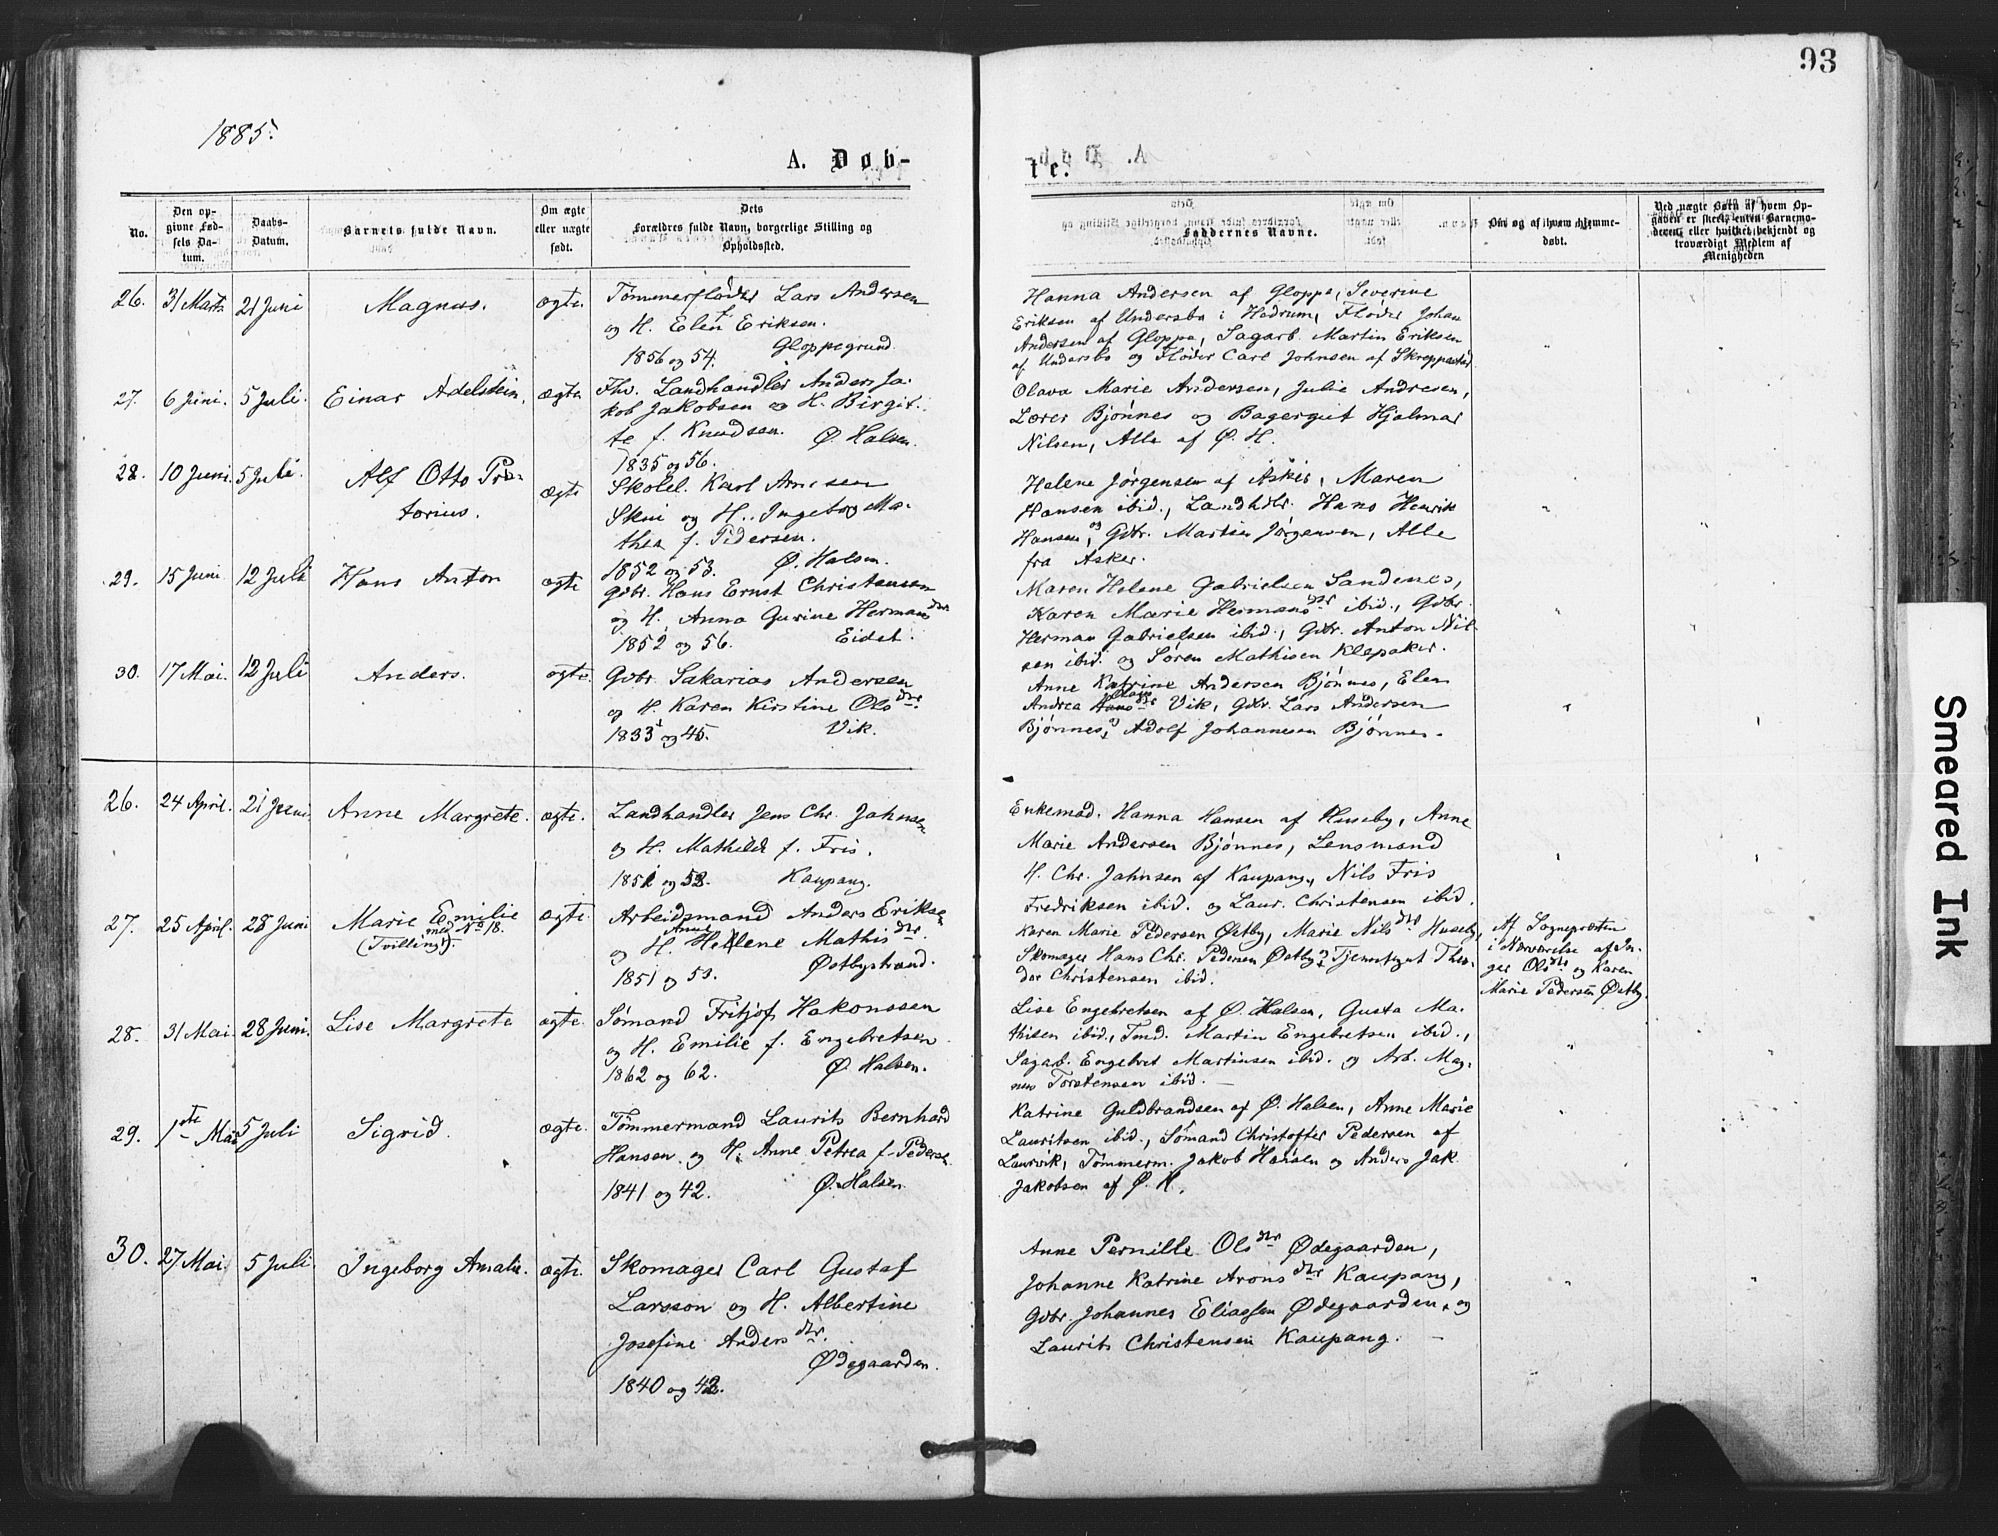 93
1885.
A. Døb-
te.
No.
Den op-
givne Fød-
sels Da-
tum.
Daabs-
Datum.
Barnets fulde Navn.
Om ægte
eller uægte
født.
Dets
Forældres fulde Navn, borgerlige Stilling og
Opholdssted.
Faddernes Navne.
Om og af hvem hjemme-
døbt.
Ved uægte Børn af hvem Op-
gaven er skeet, enten Barnemo-
deren eller hvilket bekjendt og
troværdigt Medlem af
Menigheden
26. 31 Marts 21 Juni Magnus. ægte.
Tømmerfløder Lars Andersen
og H. Elen f. Eriksen.
1856 og 54. Gloppegrund.
Hanna Andersen af Gloppe, Severine
Eriksen af Undersbo i Hedrum, Fløder Johan
Andersen af Gloppe, Sagarb. Martin Eriksen
af Undersbo og Fløder Carl Johnsen af Skreppestad
27. 6 Juni. 5 Juli. Einar Adelstein, ægte
Fhv. Landhandler Anders Ja-
kob Jakobsen og H. Birgit-
te f. Knudsen. Ø. Halsen.
1835 og 56.
Olava Marie Andersen, Julie Andresen,
Lærer Bjønnes og Bagergut Hjalmar
Nilsen, Alle af Ø. H.
28. 10 Juni. 5 Juli. Alf Otto Præ-
torius. ægte
Skolel. Karl Arnesen
Skui og H. Ingeborg Ma-
thea f. Pedersen.
1852 og 53. Ø. Halsen.
Helene Jørgensen af Asker, Maren
Hansen ibid., Landhdlr. Hans Henrik
Hansen, og Gdbr. Martin Jørgensen, Alle
fra Asker.
29. 15 Juni 12 Juli Hans Anton ægte
Gdbr. Hans Ernst Christensen
og H. Anna Gurine Hermansdtr
1852 og 56. Eidet.
Maren Helene Gabrielsen Sandenes,
Karen Marie Hermansdtr ibid., Gdbr.
Herman Gabrielsen ibid., Gdbr. Anton Nil-
sen ibid. og Søren Mathisen Klepaker.
30. 17 Mai. 12 Juli Anders. ægte.
Gdbr. Sakarias Andersen
og H. Karen Kirstine Olsdtr.
1833 og 45. Vik.
Anne Katrine Andersen Bjønnes, Elen
Andrea Vik, Gdbr. Lars Andersen
Bjønnes, Adolf Johannesen Bjønnes.
26. 24 April. 21 Juni. Anne Margrete. ægte.
Landhandler Jens Chr. Jahnsen
og H. Mathilde f. Fris.
1851 og 53. Kaupang.
Enkemad. Hanna Hansen af Huseby, Anne
Marie Andersen Bjønnes, Lensmand
H. Chr. Jahnsen af Kaupang, Nils Fris
Fredriksen ibid. og Laur. Christensen ibid.
27. 25 April. 28 Juni Marie Emilie
(Tvilling med No 18.) ægte.
Arbeidsmand Anders Eriksen
og H. Anne Helene Mathisdtr.
1851 og 53. Østbystrand.
Karen Marie Pedersen Østby, Marie Nilsdtr Huseby,
Skomager Hans Chr. Pedersen Østby og Tjenestegut Theo-
dor Christensen ibid.
Af Sognepresten
i Nærværelse af In-
ger Olsdtr. og Karen
Marie Pedersen Østby.
28. 31 Mai. 28 Juni. Lise Margrete ægte.
Sømand Fritjof Hakonssen
og H. Emilie f. Engebretsen
1862 og 62. Ø. Halsen.
Lise Engebretsen af Ø. Halsen, Gusta Ma-
thisen ibid., Tmd. Martin Engebretsen ibid.,
Sagarb. Engebret Martinsen ibid. og Arb. Mag-
nus Torstensen ibid. —
29. 1ste Mai 5 Juli Sigrid. ægte.
Tømmermand Laurits Bernhard
Hansen og H. Anne Petrea f. Pedersen
1841 og 42. Ø. Halsen.
Katrine Guldbrandsen af Ø. Halsen, Anne Marie
Lauritsen ibid., Sømand Christoffer Pedersen af
Laurvik, Tømmerm. Jakob Hansen og Anders Jak.
Jakobsen af Ø. H.
30. 27 Mai. 5 Juli. Ingeborg Amalie. ægte.
Skomager Carl Gustaf
Larsson og H. Albertine
Josefine Andersdtr.
Ødegaarden.
1840 og 42.
Anne Pernille Olsdtr Ødegaarden,
Johanne Katrine Aronsdtr Kaupang,
Gdbr. Johannes Eliassen Ødegaarden, og
Laurits Christensen Kaupang. —
Smeared Ink